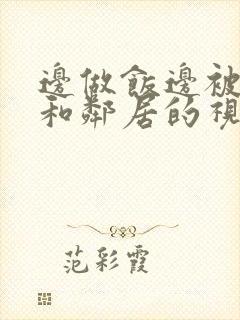 邊做飯邊被
和鄰居的視
范彩霞